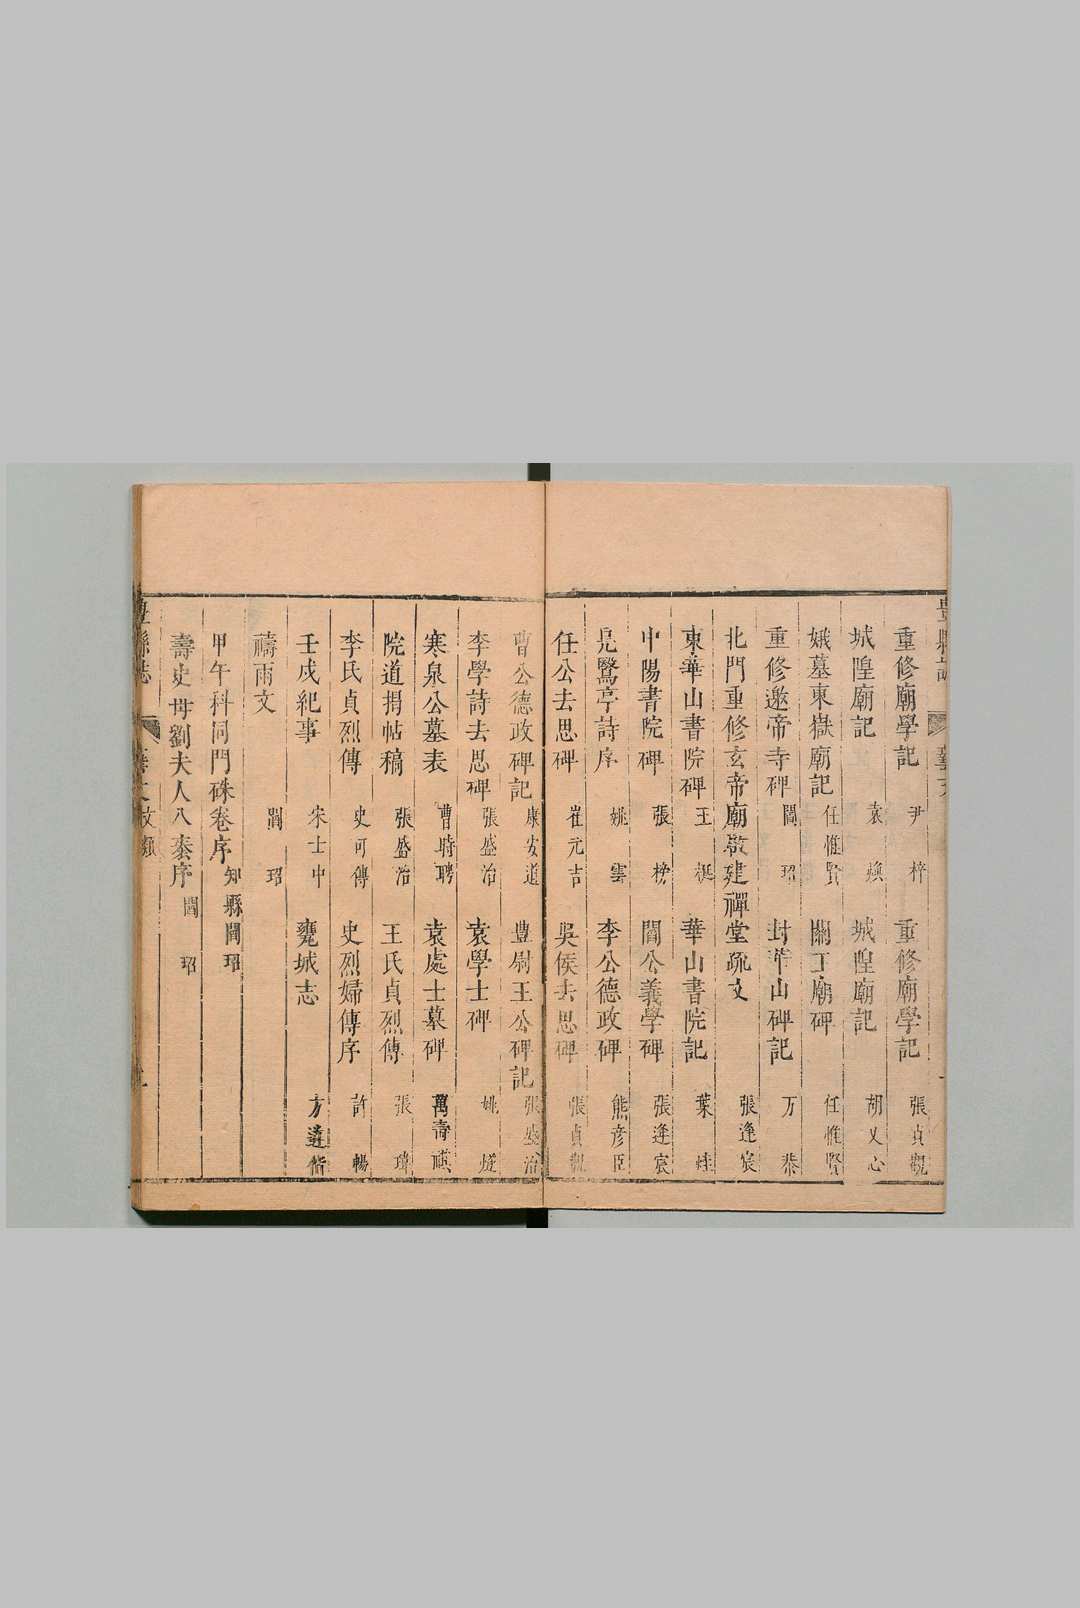 重修廟學記 尹梓 重修廟學記 張貞觀
城隍廟記 袁煥 城隍廟記 胡乂心
娥墓東嶽廟記 任惟賢 關王廟碑 任惟賢
重修邀帝寺碑 閻玿 封華山碑記 万恭
北門重修玄帝廟敬建禪堂疏文 張逢宸
東華山書院碑 王梃 華山書院記 葉
中陽書院碑 張榜 閻公義學碑 張逢宸
鳧鷖亭詩序 姚雲 李公德政碑 熊彦臣
任公去思碑 崔元吉 吳侯去思碑 張貞觀
曹公德政碑記 康安道 豊尉王公碑記 張盛治
李學詩去思碑 張盛治 袁學士碑 姚燧
寒泉公墓表 曹時聘 袁處士墓碑 萬壽祺
院道揭帖稿 張盛治 王氏貞烈傳 張瑋
李氏貞烈傳 史可傳 史烈婦傳序 許暢
壬戌紀事 宋士中 甕城志 方遴偕
禱雨文 閻玿
甲午科同門硃卷序 知縣閻玿
壽史母劉夫人八秦序 閻玿
豊縣志 藝文 文類